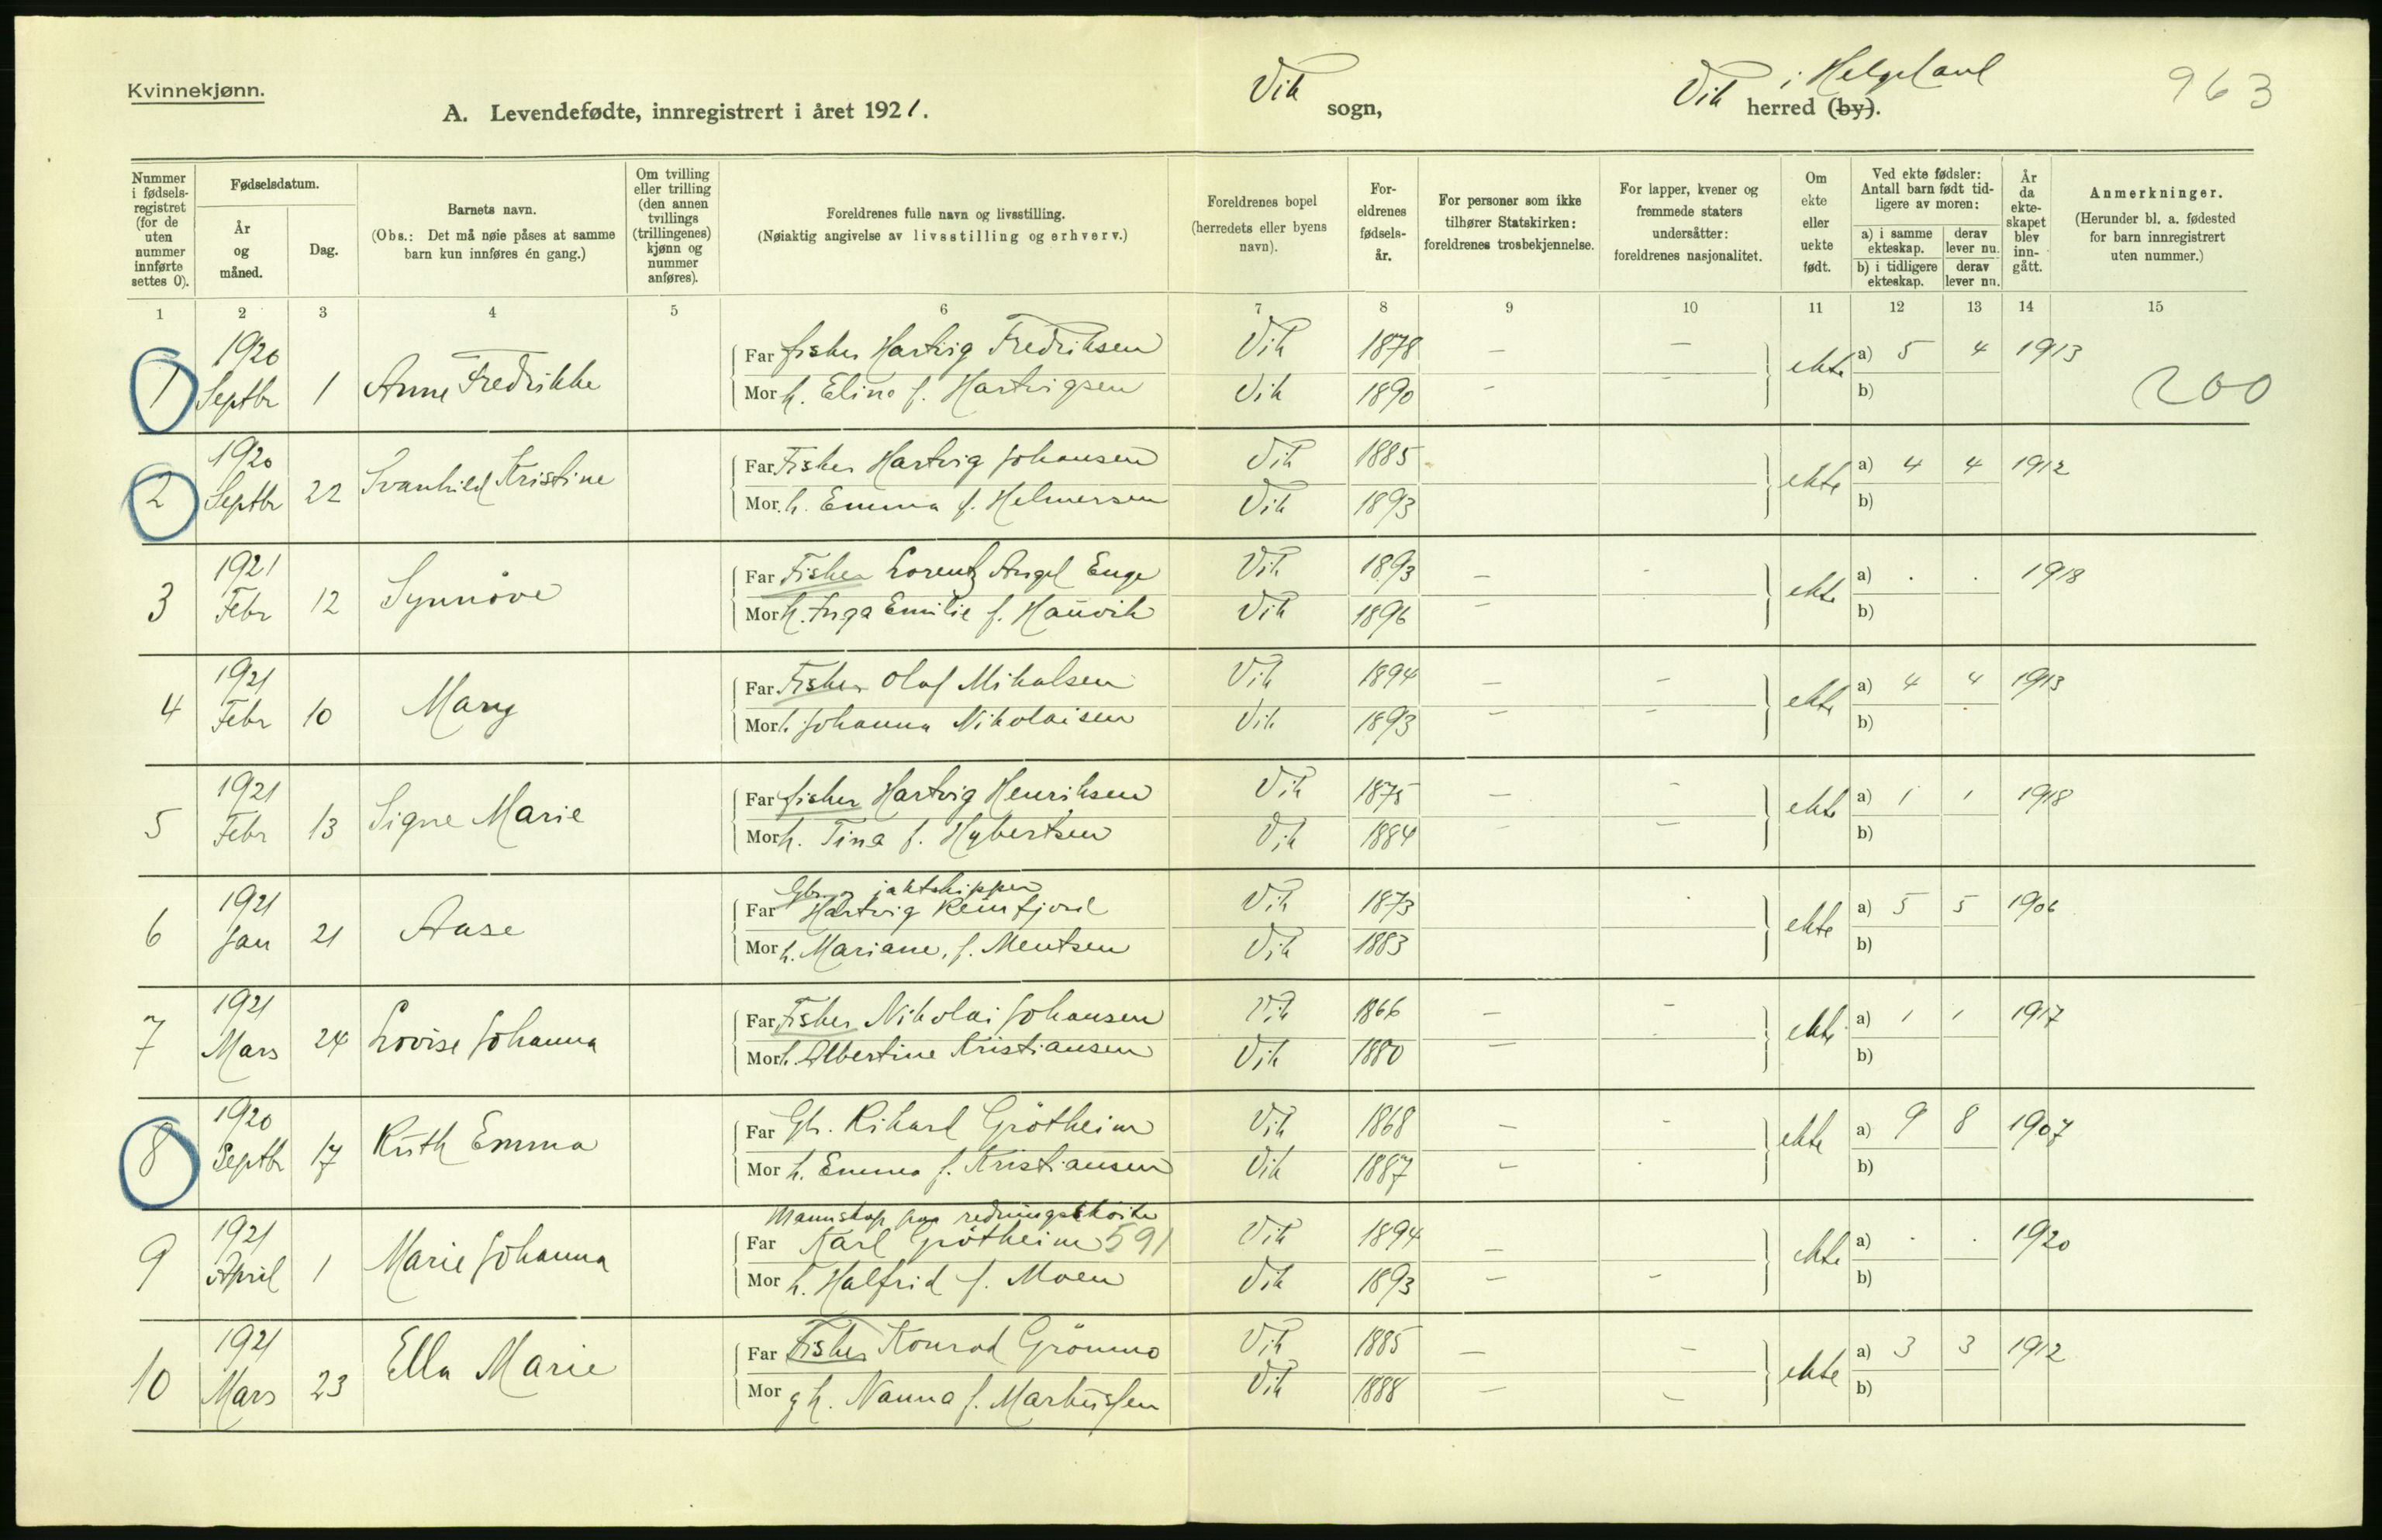 Kvinnekjønn.
A. Levendefødte, innregistrert i året 1921.
Vik sogn,
Vik i Helgeland herred (by).
963
Nummer i fødsels-registret (for de uten nummer innførte settes 0).
Fødselsdatum.
År og måned.
Dag.
Barnets navn.
(Obs.: Det må nøie påses at samme barn kun innføres én gang.)
Om tvilling eller trilling (den annen tvillings (trillingenes) kjønn og nummer anføres).
Foreldrenes fulle navn og livsstilling.
(Nøiaktig angivelse av livsstilling og erhverv.)
Foreldrenes bopel (herredets eller byens navn).
For-eldrenes fødsels-år.
For personer som ikke tilhører Statskirken: foreldrenes trosbekjennelse.
For lapper, kvener og fremmede staters undersåtter: foreldrenes nasjonalitet.
Om ekte eller uekte født.
Ved ekte fødsler: Antall barn født tid-ligere av moren:
a) i samme ekteskap.
derav lever nu.
b) i tidligere ekteskap.
derav lever nu.
År da ekte-skapet blev inn-gått.
Anmerkninger.
(Herunder bl. a. fødested for barn innregistrert uten nummer.)
1 2 3 4 5 6 7 8 9 10 11 12 13 14 15
1 1920 Septbr 1 Anne Fredrikke
Far fisker Hartvig Fredriksen Vik 1878 — — ekte a) 5 4 1913
Mor h. Elino f. Hartvigsen Vik 1890 — — b)
200
2 1920 Septbr 22 Svanhild Kristine
Far Fisker Hartvig Johansen Vik 1885 ekte a) 4 4 1912
Mor h. Emma f. Helmersen Vik 1893 b)
3 1921 Febr 12 Synnöve
Far Fisker Lorentz Angel Enge Vik 1893 — - ekte a) . . 1918
Mor h. Inga Emilie f. Haŭvik Vik 1896 — b)
4 1921 Febr 10 Mary
Far Fisker Olaf Mikalsen Vik 1894 — — ekte a) 4 4 1913
Mor h. Johanna Nikolaisen Vik 1893 — — b)
5 1921 Febr 13 Signe Marie
Far fisker Hartvig Henriksen Vik 1875 — — ekte a) 1 1 1918
Mor h. Tina f. Hybertsen Vik 1884 — — b)
6 1921 Jan 21 Aase
Gbr. o jaktskipper
Far Hartvig Reinfjord Vik 1873 ekte a) 5 5 1906
Mor h. Mariane, f. Mentsen Vik 1883 b)
7 1921 Mars 24 Lovise Johanna
Far Fisker Nikolai Johansen Vik 1866 — — ekte a) 1 1 1917
Mor h. Albertine Kristiansen Vik 1880 — b)
8 1920 Septbr 17 Rŭth Emma
Far Gbr. Rikard Grötheim Vik 1868 — - ekte a) 9 8 1907
Mor h. Emma f. Kristiansen Vik 1887 — b)
9 1921 April 1 Marie Johanna
Mannskap paa redningsskoite
Far Karl Grötheim 591 Vik 1894 — ekte a) . . 1920
Mor h. Halfrid f. Moen Vik 1893 — — b)
10 1921 Mars 23 Ella Marie
Far Fisker Konrad Grönmo Vik 1885 — — ekte a) 3 3 1912
Mor h. Nanna f. Markŭssen Vik 1888 — — b)